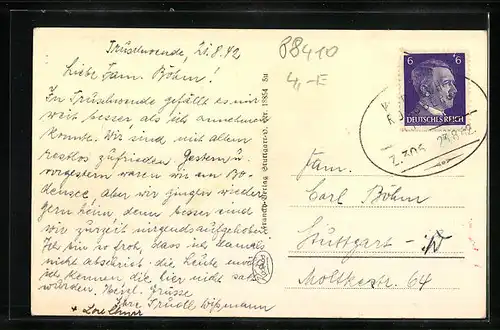 21.8.42
Liebe Fam. Böhm!
In gefällt es mir
weit besser, als ich annehmen
konnte. Wir sind mit allem
restlos zufrieden. Gestern u.
vorgestern waren wir am Bo-
densee, aber wir gingen wieder
gern heim, denn besser sind
wir zurzeit nirgends aufgehoben.
Ich bin so froh, dass ich damals
nicht abschrieb. die Leute
kennen die hier nicht satt
werden. Herzl. Grüsse
Ihre Trudl
P8410
4,-E
6 6
DEUTSCHES REICH
Z. 306 23.8.42
Fam.
Carl Böhm
Stuttgart-W
Moltkestr. 64
Verlag Stuttgart 18854